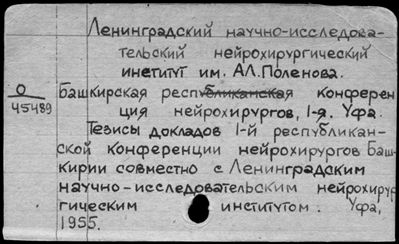 Ленинградский научно-исследова-
тельский нейрохирургический
институт им. А.Л. Поленова.
О
45489
Башкирская республиканская конферен
ция нейрохирургов, 1-я. Уфа.
Тезисы докладов 1-й республикан-
ской конференции нейрохирургов Баш-
кирии совместно с Ленинградским
научно-исследовательским нейрохирур
гическим институтом. Уфа,
1955.